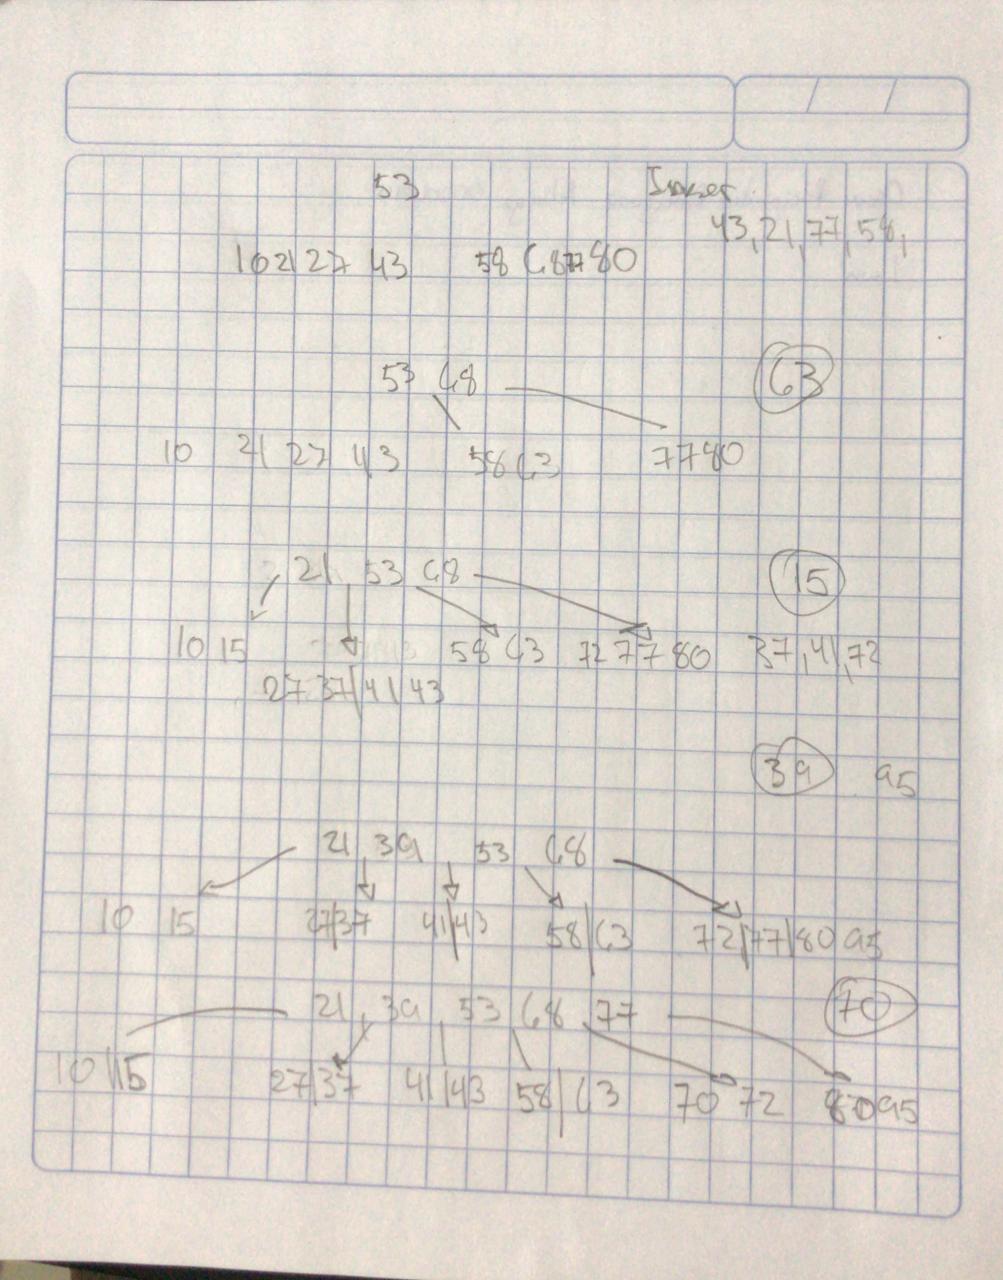 53
43, 21, 77, 58,
10 21 27 43 58 68 77 80
53 68 63
10 21 27 43 58 63 77 80
21 53 68 15
10 15 58 63 72 77 80 37, 41, 72
27 37 41 43
39 95
21 39 53 68
10 15 27 37 41 43 58 63 72 77 80 95
21 39 53 68 77 70
10 15 27 37 41 43 58 63 70 72 80 95